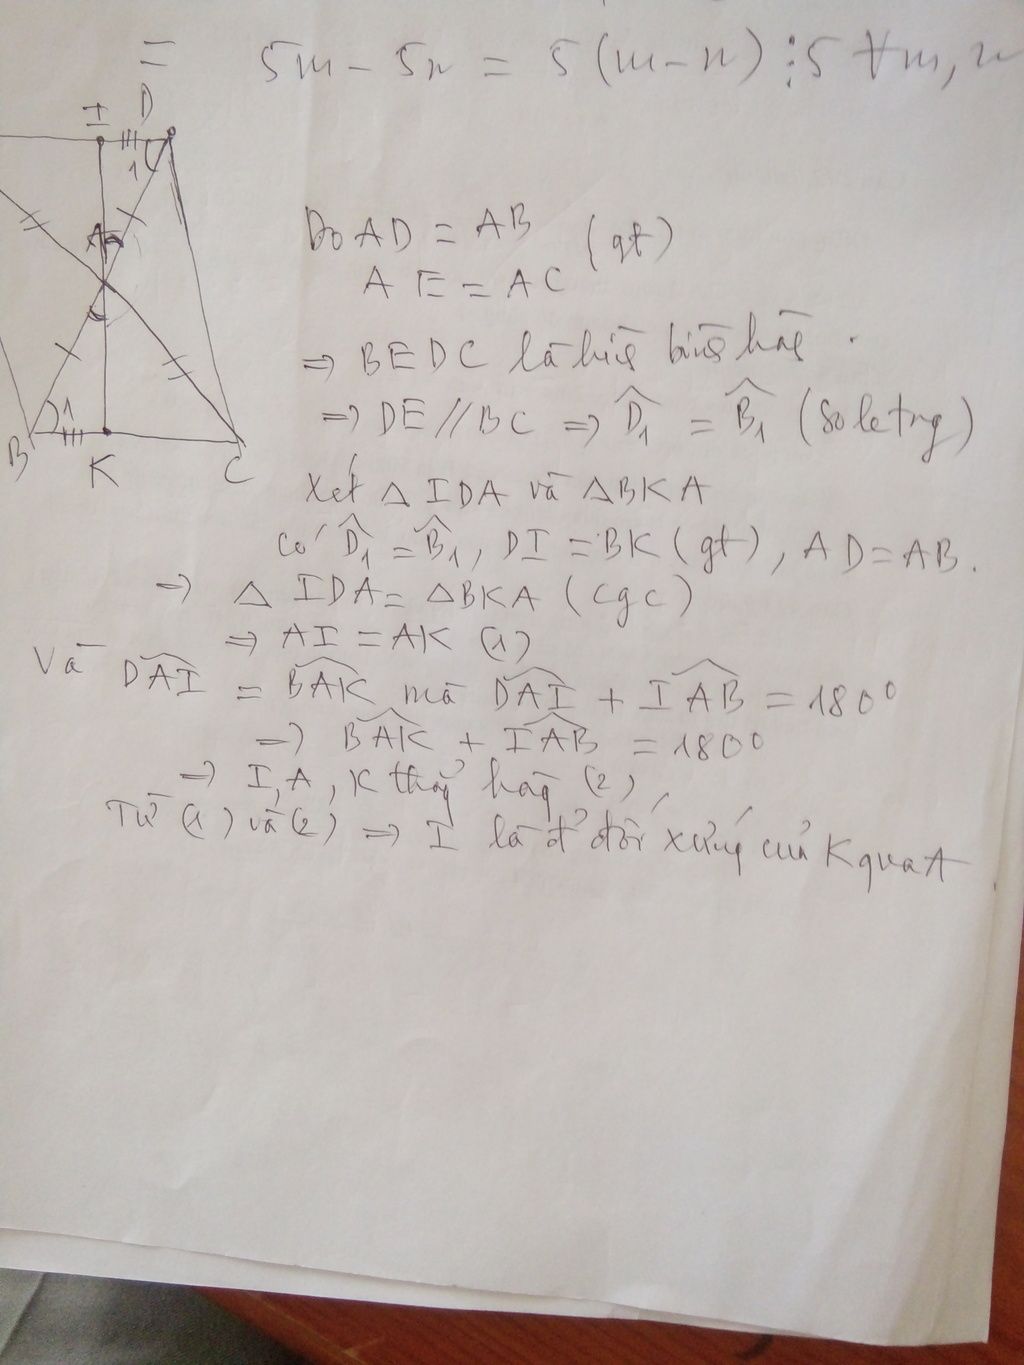 = 5m - 5n = 5(m-n) ⋮ 5 ∀m, n
I D
1
A
1
B K C
Do AD = AB (gt)
AE = AC
=> BEDC là hìn bìn hàn .
=> DE // BC => D̂1 = B̂1 (so le trg)
Xét △ IDA và △BKA
có D̂1 = B̂1, DI = BK (gt), AD = AB.
=> △ IDA = △BKA (cgc)
=> AI = AK (1)
Và DAI = BAK mà DAI + IAB = 180°
=> BAK + IAB = 180°
=> I, A, K thẳg hàg (2)
Từ (1) và (2) => I là đ' đối xứng của K qua A